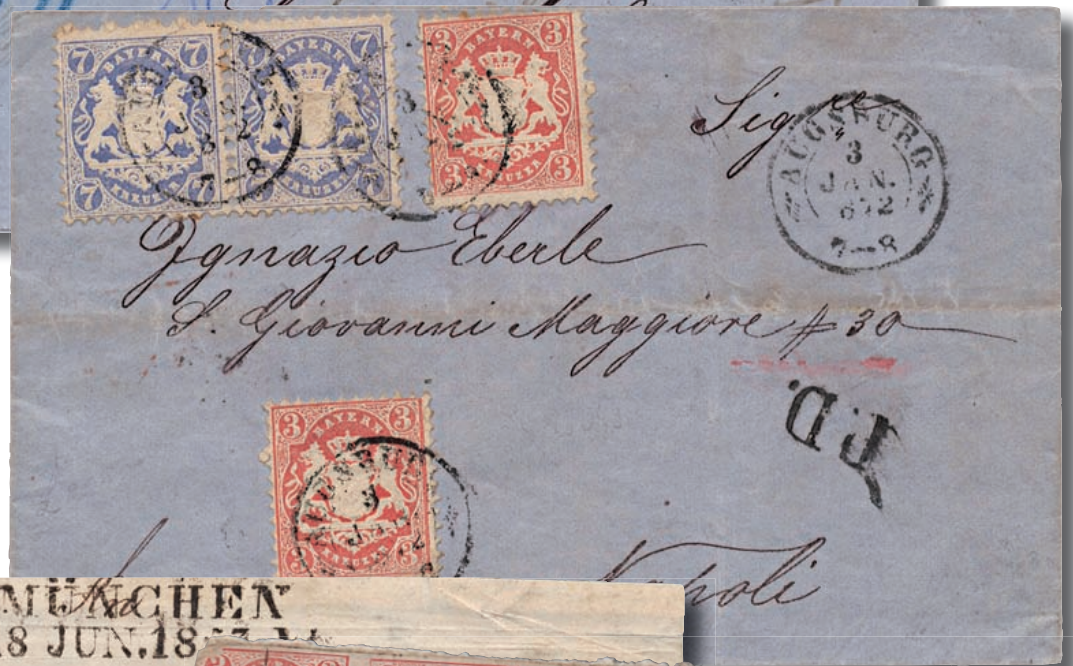 7 BAYERN 7
7 KREUZER 7
7 BAYERN
KREUZER
3 BAYERN 3
3 KREUZER 3
3
7-8
Sigre
AUGSBURG
3
JAN.
872
7-8
Ignazio Eberle
S. Giovanni Maggiore # 30
P.D.
3 BAYERN 3
AUGSBURG
3
JAN.
Napoli
MÜNCHEN
18 JUN.18
3